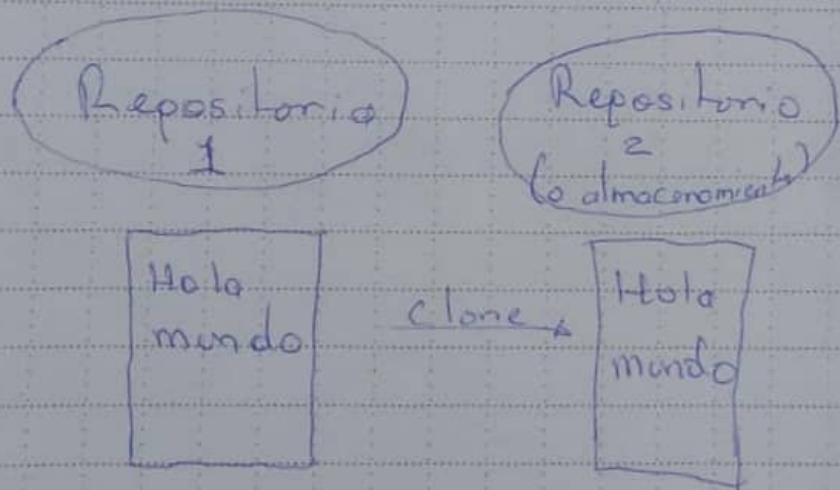 Repositorio
1
Repositorio
2
(o almacenamiento)
Hola
mundo
Clone
Hola
mundo